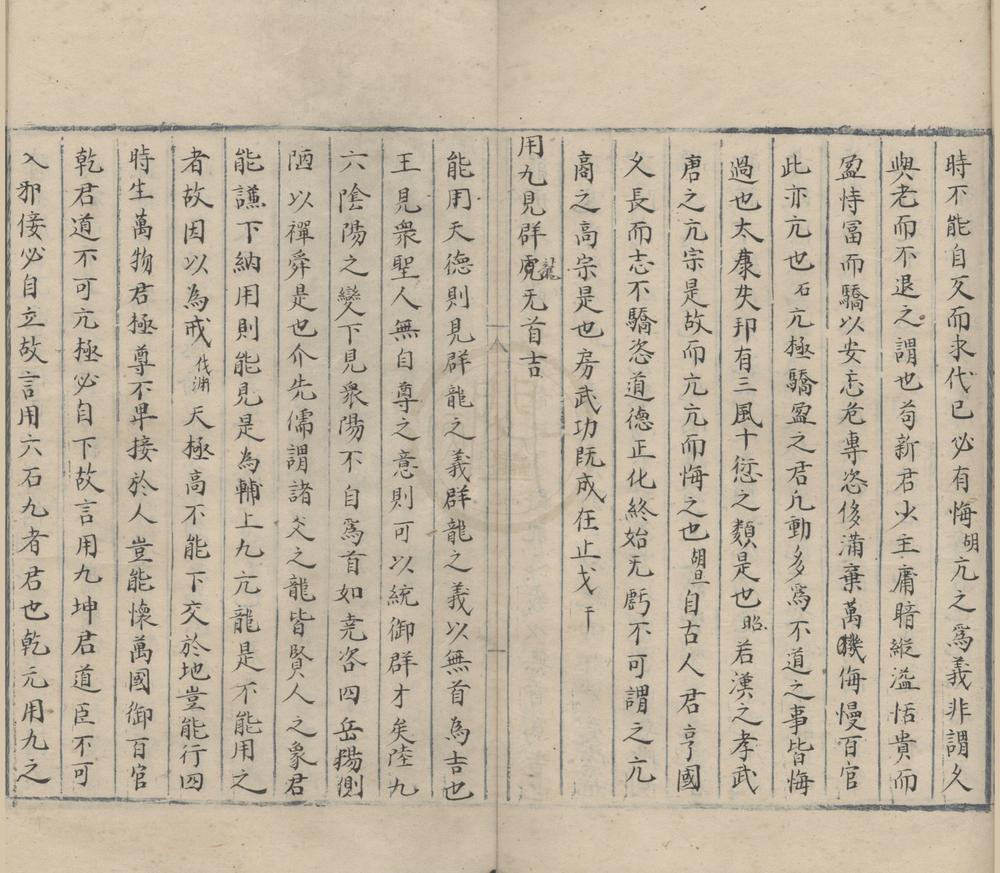 時不能自反而求代已必有悔胡亢之為義非謂久
與老而不退之謂也苟新君少主庸暗縱溢恬貴而
盈恃冨而驕以安忘危專恣侈滿棄萬機侮慢百官
此亦亢也石亢極驕盈之君凡動多為不道之事皆悔
過也太康失邦有三風十愆之類是也昭若漢之孝武
唐之亢宗是故而亢亢而悔之也胡旦自古人君享國
久長而志不驕恣道德正化終始无虧不可謂之亢
商之高宗是也房武功既成在止戈干
用九見群龍无首吉
能用天德則見群龍之義群龍之義以無首為吉也
王見衆聖人無自尊之意則可以統御群才矣陸九
六陰陽之變下見衆陽不自為首如堯咨四岳揚側
陋以禪舜是也介先儒謂諸爻之龍皆賢人之象君
能謙下納用則能見是為輔上九亢龍是不能用之
者故因以為戒代淵天極高不能下交於地豈能行四
時生萬物君極尊不卑接於人豈能懷萬國御百官
乾君道不可亢極必自下故言用九坤君道臣不可
入邪佞必自立故言用六石九者君也乾元用九之